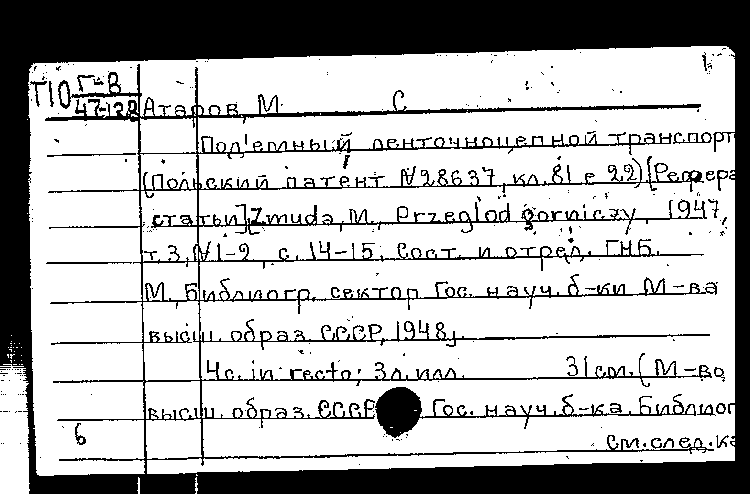 Т10 Г-В
47-128 Атаров, М. С
Под'емный ленточноцепной транспорт
(Польский патент N28637, кл. 81 е 22) [Рефера
статьи] Zmuda, M., Przeglod gorniczy, 1947,
т. 3, N1-2, с. 14-15. Сост. и отред. ГНБ.
М., Библиогр. сектор Гос. науч. б-ки М-ва
высш. образ. СССР, 1948].
4с. in recto; 3л. илл. 31см. (М-во
высш. образ. СССР Гос. науч. б-ка. Библиог
6 См. след. ка